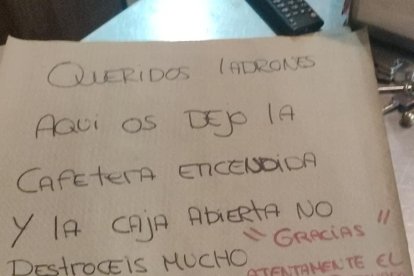 QUERIDOS LADRONES
AQUI OS DEJO LA
CAFETERA ENCENDIDA
Y LA CAJA ABIERTA NO
DESTROCEIS MUCHO "GRACIAS"
ATENTAMENTE EL